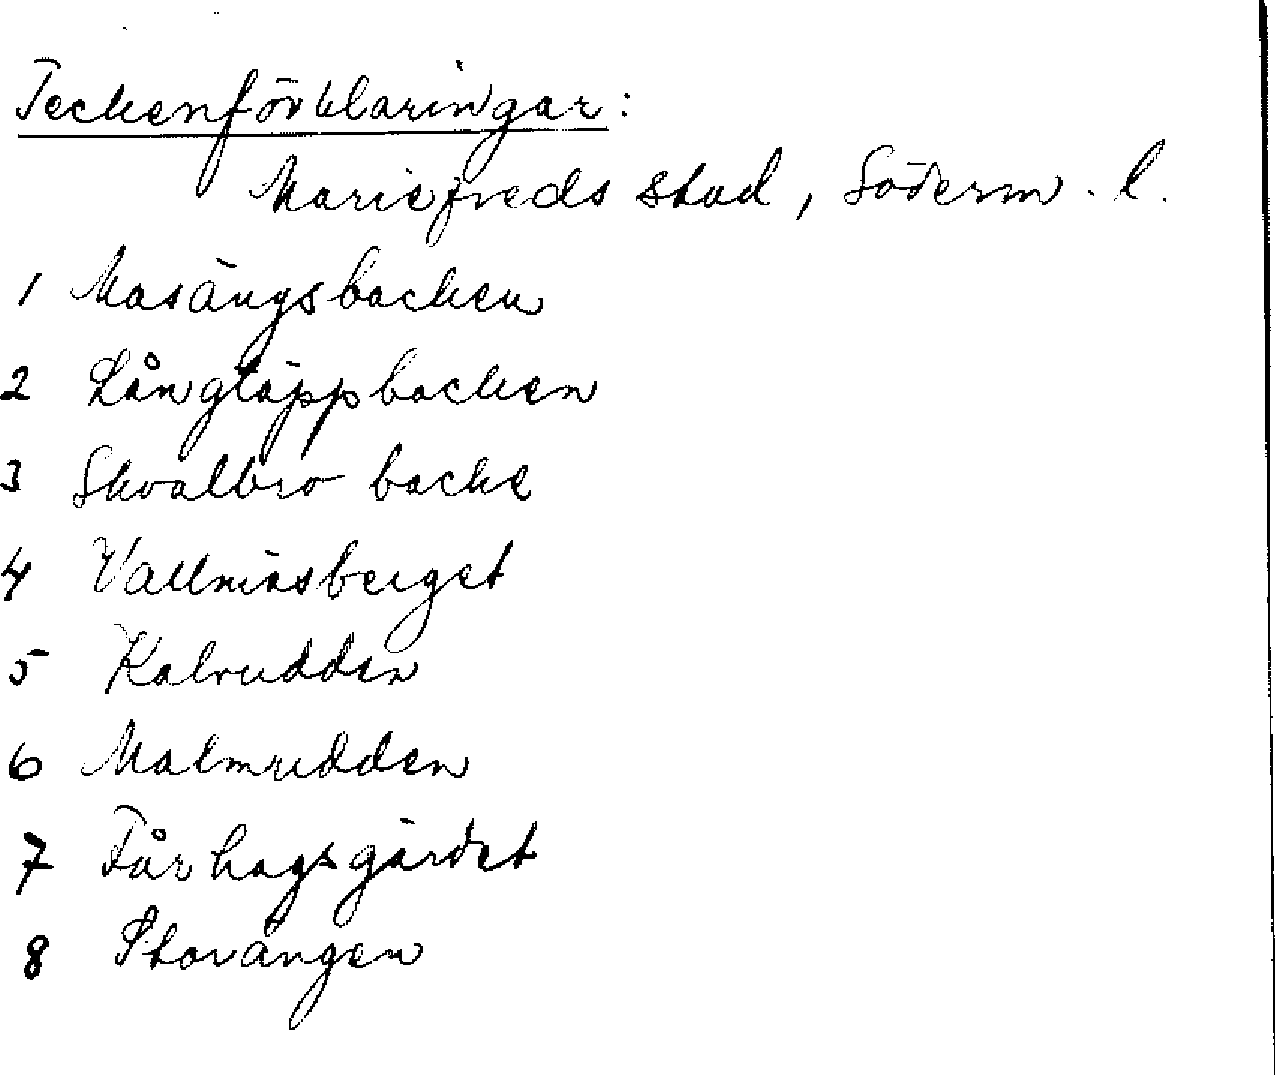 Teckenförklaringar:
Mariefreds stad, Söderm. l.
1 Masängsbacken
2 Långtäppbacken
3 Skvalbro backe
4 Vallnäsberget
5 Kalvudden
6 Malmudden
7 Fårhagsgärdet
8 Storängen